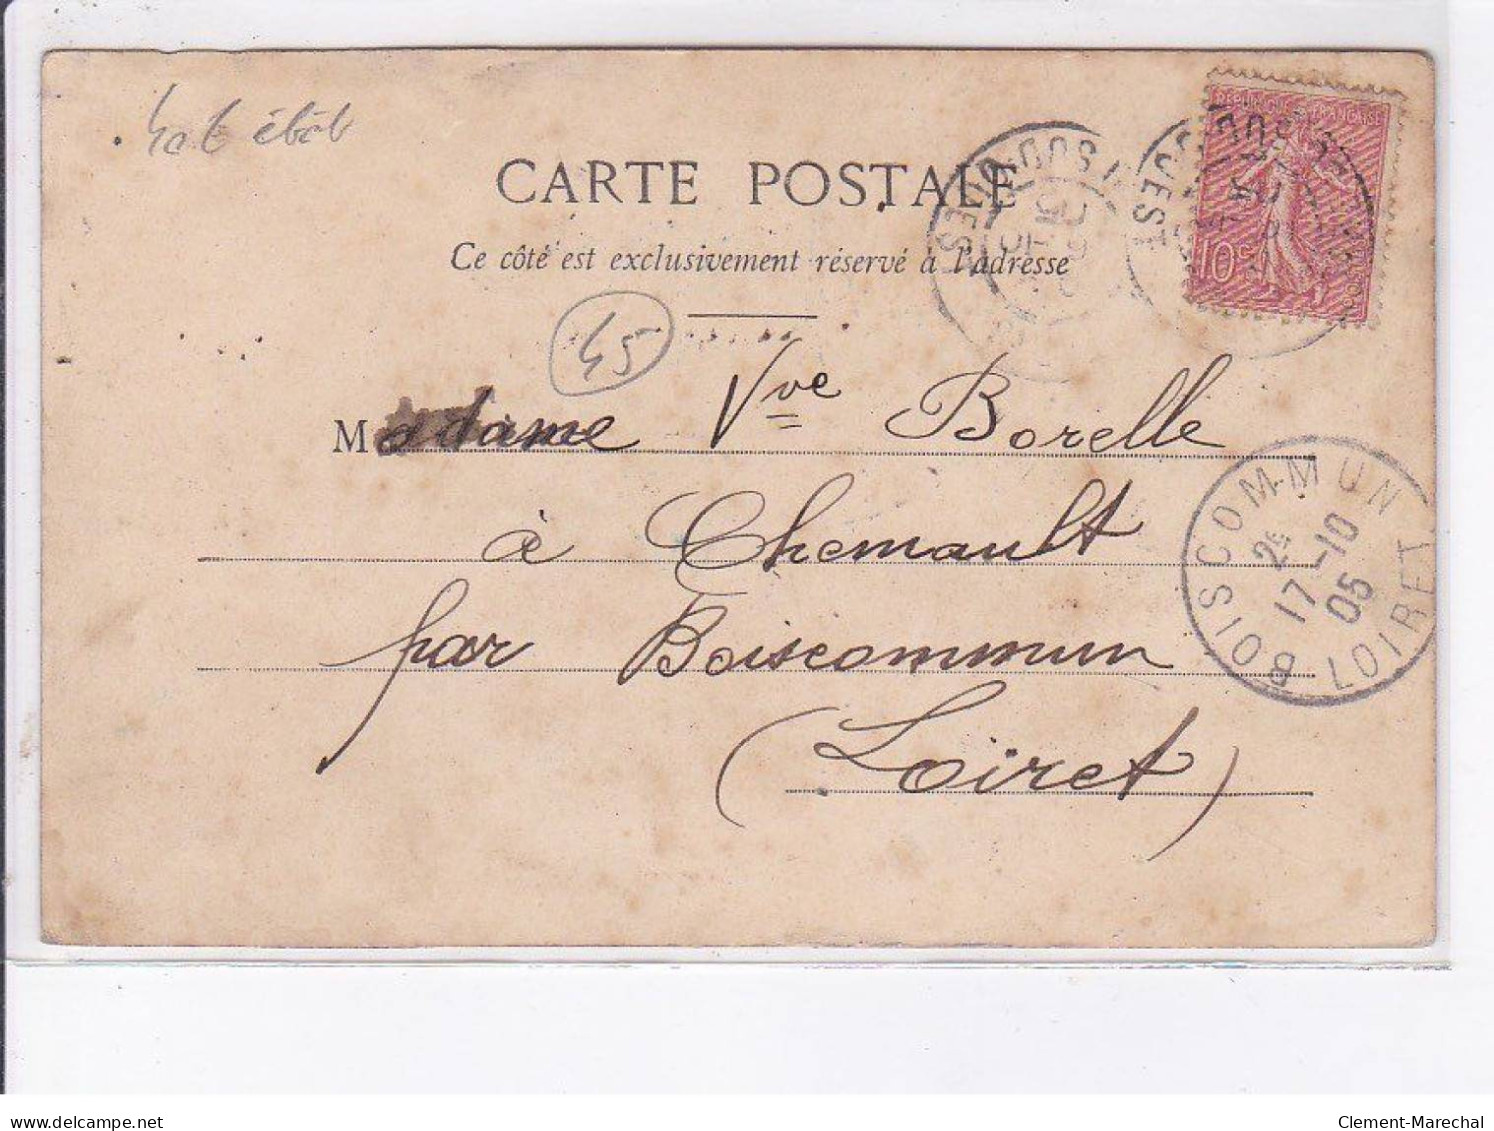 CARTE POSTALE
Ce côté est exclusivement réservé à l'adresse
45
RÉPUBLIQUE FRANÇAISE
10c
Madame Vve Borelle
à Chemault
par Boiscommun
(Loiret)
BOISCOMMUN
2E
17-10
05
LOIRET
delcampe.net
Clement-Marechal